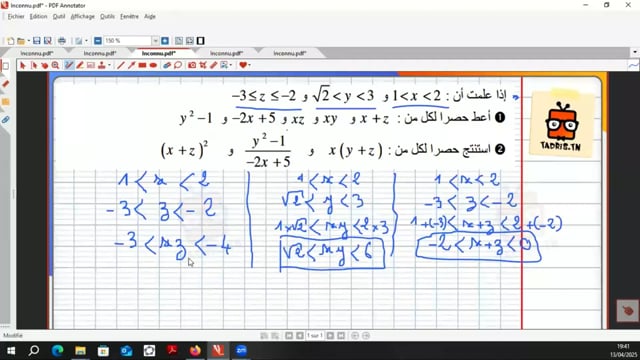 Inconnu.pdf* - PDF Annotator
Fichier Edition Outil Affichage Outils Fenêtre Aide
150 %
Inconnu.pdf* Inconnu.pdf* Inconnu.pdf* Inconnu.pdf* Inconnu.pdf*
إذا علمت أن : 1<x<2 و √2<y<3 و −3≤z≤−2
❶ أعط حصرا لكل من : x+z و xy و xz و −2x+5 و y²−1
❷ استنتج حصرا لكل من : x(y+z) و (y²−1)/(−2x+5) و (x+z)²
TADRIS.TN
1<x<2
-3<z<-2
-3<xz<-4
1<x<2
√2<y<3
1×√2<xy<2×3
√2<xy<6
1<x<2
-3<z<-2
1+(-3)<x+z<2+(-2)
-2<x+z<0
Modifié
1 sur 1
19:41
13/04/2025